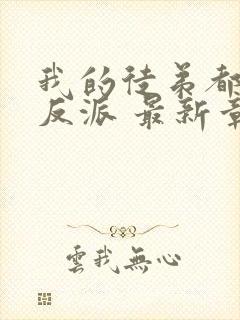 我的徒弟都
反派 最新章
雲我無心